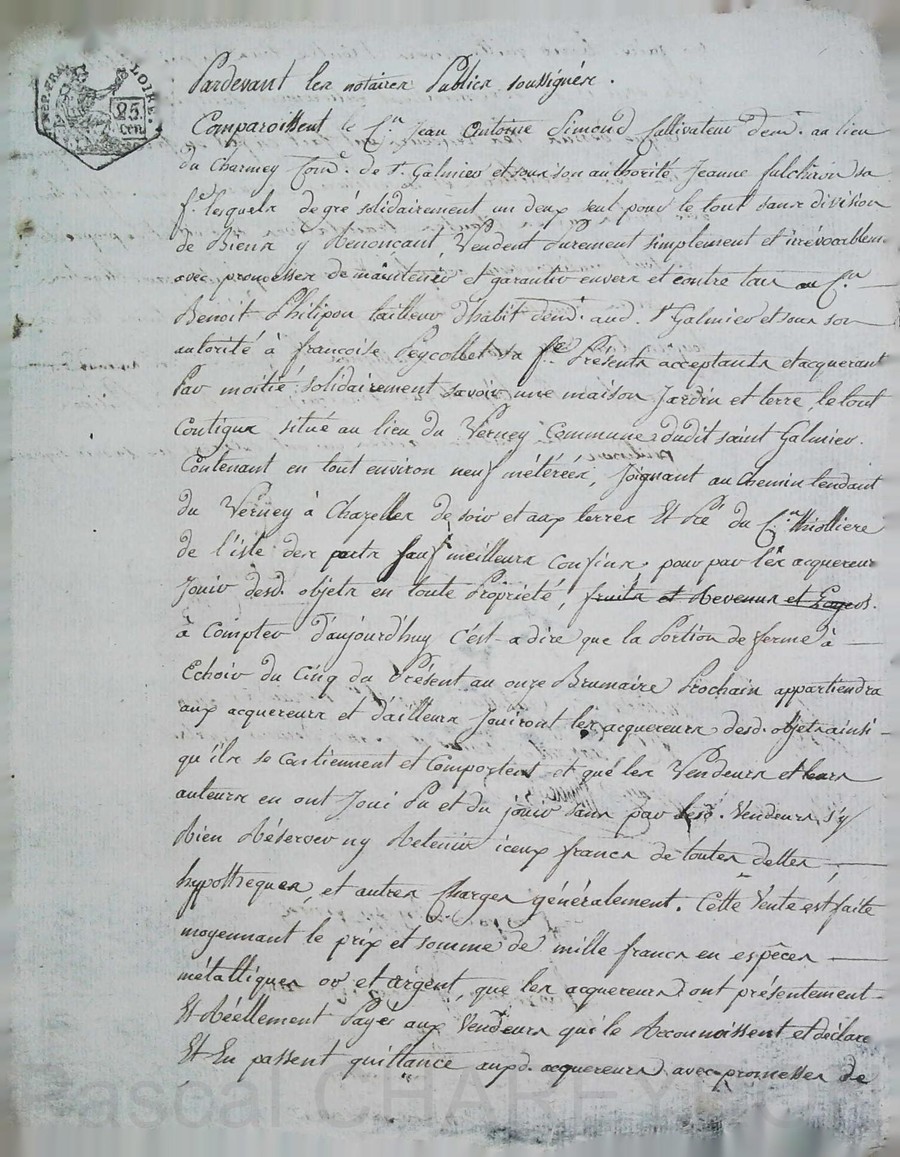 REP. FRA. LOIRE.
25.
cen
Pardevant les notaires Publics soussignés.
Comparoissent le C.en Jean Antoine Simond Cultivateur dem.t au lieu
du Charmey Com.e de s.t Galmier et sous son authorité Jeanne fulchiron sa
f.e lesquels de gré solidairement un deux seul pour le tout sans division
de Biens y Renonçant Vendent purement simplement et irrévocablem.
avec promesses de maintenir et garantir envers et contre tous au C.en
Benoit Philipon tailleur d'habit dem.t aud. s.t Galmier et sous son
autorité à françoise Peycollet sa f.e Présents acceptants et acquerant
Par moitié solidairement savoir une maison Jardin et terre, le tout
Contigux situé au lieu du Verney Commune dudit saint Galmier.
Contenant en tout environ neuf métérées, Joignant au chemin tendant
du Verney à Chazelles de soir et aux terres Et Pré du C.en Thiolliere
de l'isle des parts sauf meilleurs confins pour par les acquereur
Jouir desd. objets en toute Propriété, fruits et Revenus et
à Compter d'aujourd'huy C'est-a dire que la Portion de ferme à
Echoir du Cinq du Présent au onze Brumaire Prochain appartiendra
aux acquereurs et d'ailleurs Jouiront les acquereurs desd. objets ainsi
qu'ils se Contiennent et Comportent et que les Vendeurs et leurs
auteurs en ont Joui Pu et du jouir sans par lesd. Vendeurs s'y
Rien Réserver ny Retenir iceux francs de toutes dettes,
hypothèques, et autres Charges généralement. Cette Vente est faite
moyennant le prix et somme de mille francs en espêces
métalliques or et argent, que les acquereurs ont présentement
Et Réellement Payés aux Vendeurs qui le Reconnoissent et déclare
Et En passent quittance auxd. acquereurs avec promesses de